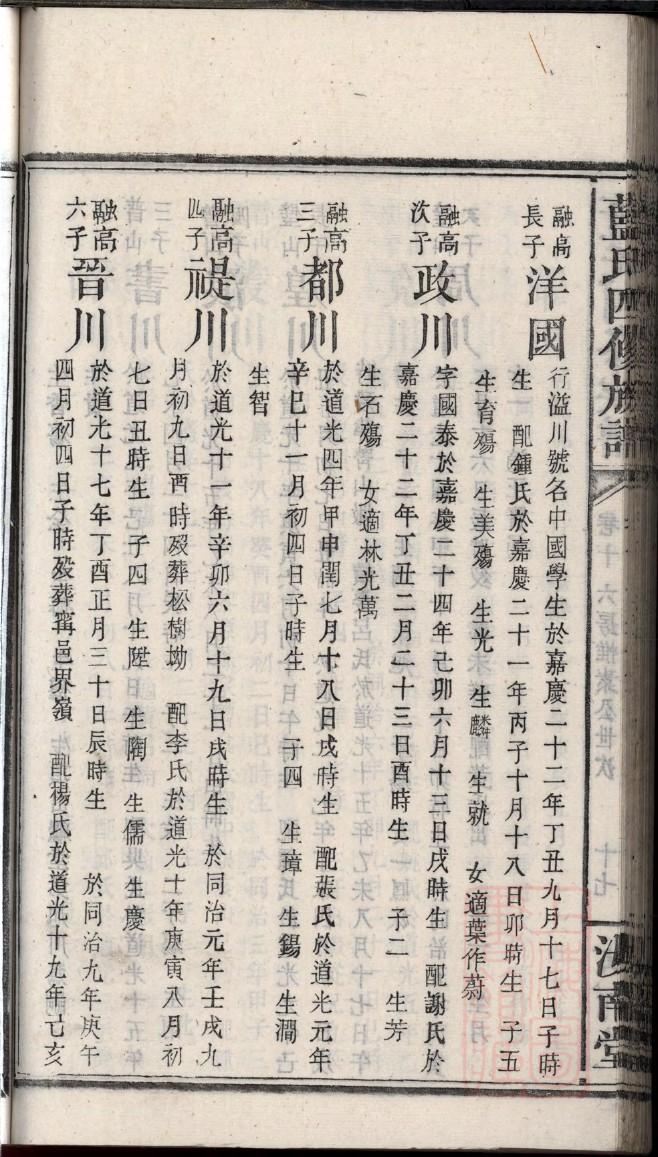 藍氏四修族譜
卷十 六房惟素公世次 十七
汝南堂
融高長子 洋國 行溢川號名中國學生於嘉慶二十二年丁丑九月十七日子時
生 配鍾氏於嘉慶二十一年丙子十月十八日卯時生 子五
生育殤 生美殤 生光 生麟 生就 女適葉作蔚
融高次子 政川 字國泰於嘉慶二十四年己卯六月十三日戌時生 配謝氏於
嘉慶二十二年丁丑二月二十三日酉時生 子二 生芳
生石殤 女適林光萬
融高三子 都川 於道光四年甲申閏七月十八日戌時生 配張氏於道光元年
辛巳十一月初四日子時生 子四 生璋 生錫 生澗
生智
融高四子 禔川 於道光十一年辛卯六月十九日戌時生 於同治元年壬戌九
月初九日酉時歿葬松樹坳 配李氏於道光十年庚寅八月初
七日丑時生 子四 生陞 生陶 生儒 生慶
融高六子 晉川 於道光十七年丁酉正月三十日辰時生 於同治九年庚午
四月初四日子時歿葬甯邑界嶺 配楊氏於道光十九年己亥